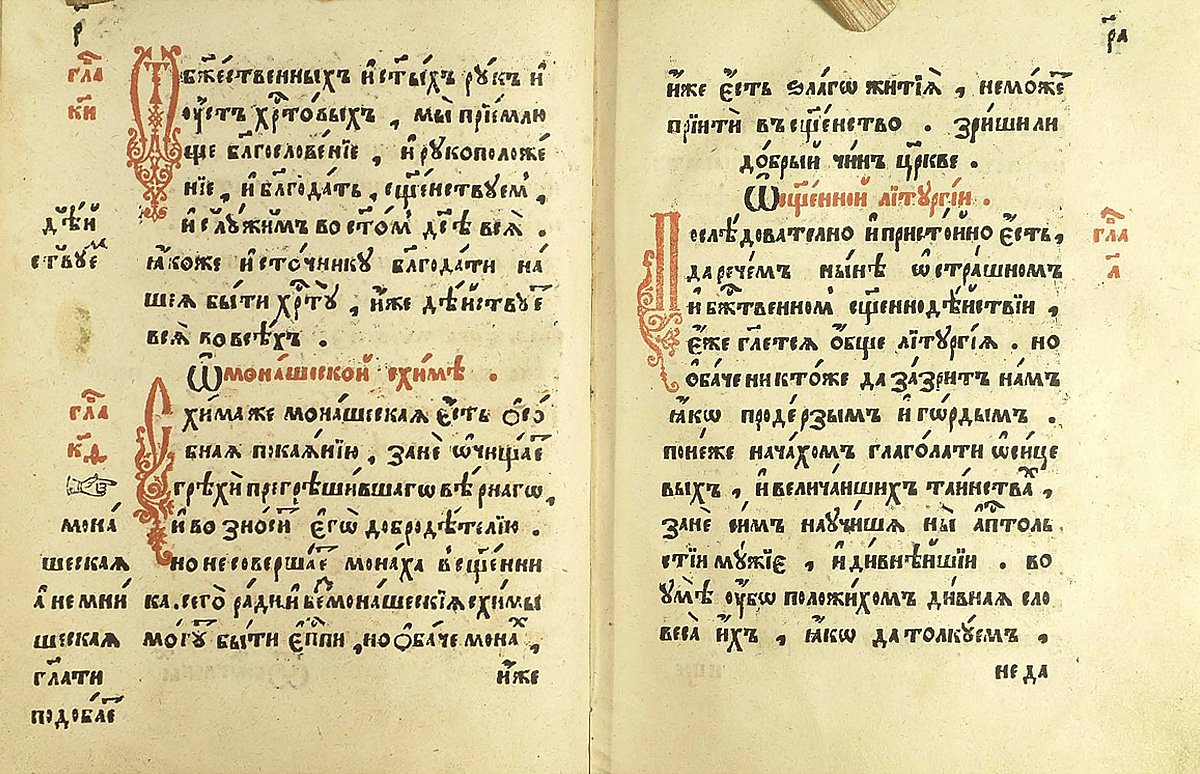 р҃
гла҃
к҃и
Тбж҃ественныхъ и҆ ст҃ы́хъ рꙋ́къ и҆
ѹ҆́стъ хрⷭ҇то́выхъ , мы̀ прїе́млю
ще бл҃гослове́нїе , и҆ рꙋкоположе́
нїе , и҆ бл҃года́ть , сщ҃е́нствꙋемъ ,
и҆ слꙋ́жимъ во ст҃о́мъ дс҃ѣ всѧ̀ .
дѣ́й
ствꙋеⷨ
ꙗ҆́коже и҆сто́чникꙋ бл҃года́ти на́
шеѧ бы́ти хрⷭ҇тꙋ̀ , и҆́же дѣ́йствꙋеⷮ
всѧ̀ во всѣ́хъ .
Ѿ мона́шеской схи́мѣ .
гла҃
к҃ѳ
Схи́ма же мона́шеская є҆́сть ѻ҆со́
бная покаѧ́нїю , занѐ ѡ҆чища́еⷮ
грѣхѝ прегрѣши́вшагѡ вѣ́рнагѡ ,
и҆ возно́ситъ є҆гѡ̀ добродѣ́телїю .
но не соверша́еⷮ мона́ха в сщ҃е́нни
ка . сегѡ̀ ра́ди и҆ беⷥ мона́шескїѧ схи́мы
мо́гꙋтъ бы́ти є҆пⷭ҇пи , но ѻ҆ба́че мона́ⷯ
мона́
шеская
а҆ не мни́
шеская
гл҃ати
подоба́еⷮ
и҆́же
р҃а
и҆́же є҆́сть ѕла́гѡ житїѧ̀ , не мо́жеⷮ
прїитѝ в сщ҃е́нство . зри́ши ли
до́брый чи́нъ цр҃кве .
Ѿ сщ҃е́нной лїтꙋргі́и .
гла҃
л҃
Послѣ́дователно и҆ присто́йно є҆́сть ,
да рече́мъ ны́нѣ ѡ҆ стра́шномъ
и҆ бж҃твенномъ сщ҃еннодѣ́йствїи ,
є҆́же гл҃етсѧ ѻ҆́бще лїтꙋргі́ѧ . но
ѻ҆ба́че никто́же да за́зритъ на́мъ
ꙗ҆́кѡ проде́рзымъ и҆ го́рдымъ .
поне́же нача́хомъ глаго́лати ѡ҆ си́це
выхъ , и҆ велича́йшихъ та́инстваⷯ ,
занѐ си́мъ наꙋчи́шѧ ны̀ а҆пⷭ҇толь
стїи мꙋ́жїе , и҆ дивнѣ́йшїи . во
ꙋмѣ̀ ѹ҆́бѡ положи́хомъ ди́вная сло
веса̀ и҆́хъ , ꙗ҆́кѡ да толкꙋ́емъ ,
не да